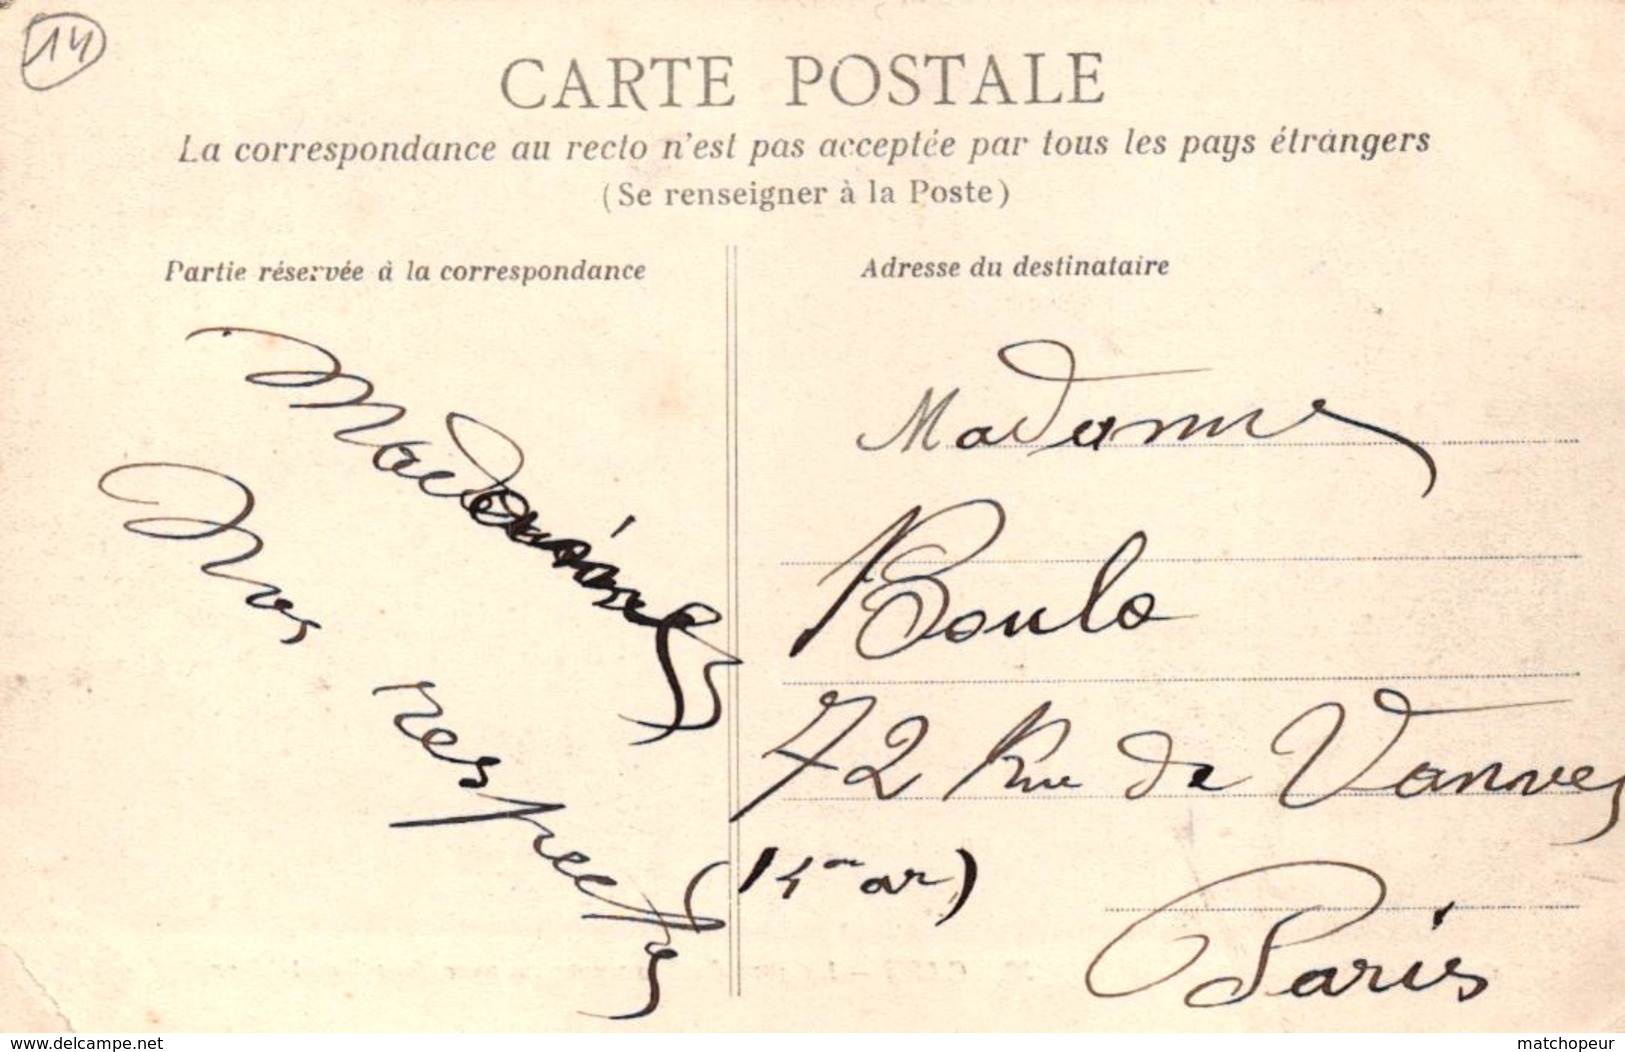 14
CARTE POSTALE
La correspondance au recto n'est pas acceptée par tous les pays étrangers
(Se renseigner à la Poste)
Partie réservée à la correspondance
Adresse du destinataire
Mes
respects
Madame
Boulo
72 Rue de Vanves
(14me ar)
Paris
www.delcampe.net
matchopeur